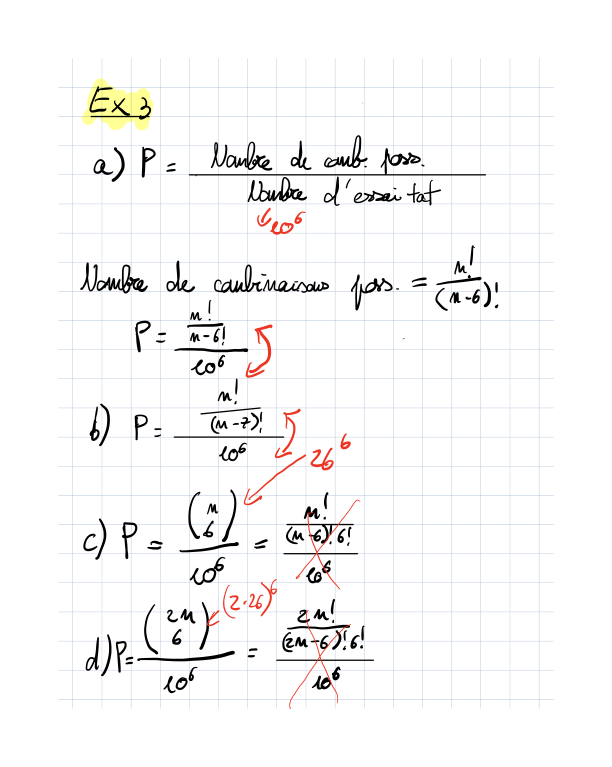 Ex 3
a) P = Nombre de comb. poss. / Nombre d'essai tot
10^6
Nombre de combinaisons poss. = n! / (n-6)!
P = (n! / n-6!) / 10^6
b) P = (n! / (n-7)!) / 10^6
26^6
c) P = (n 6) / 10^6 = (n! / (n-6)! 6!) / 10^6
(2·26)^6
d) P = (2n 6) / 10^6 = (2n! / (2n-6)! 6!) / 10^6